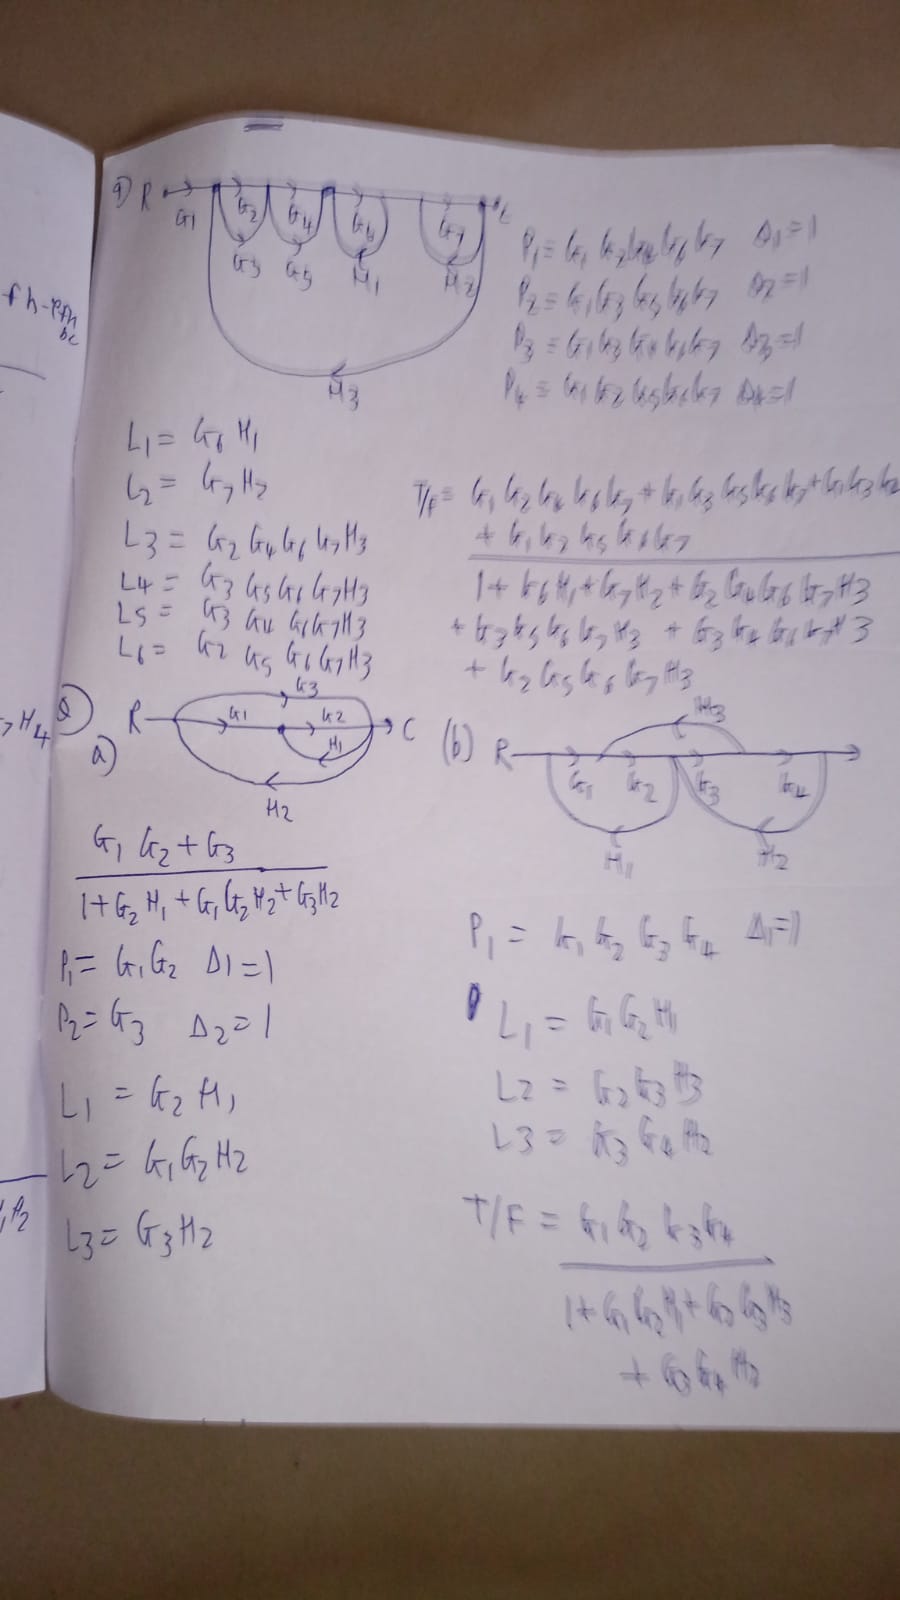 R
G1
G2
G4
G6
G7
C
G3
G5
H1
H2
H3
P1 = G1 G2 G4 G6 G7 Δ1 = 1
P2 = G1 G3 G5 G6 G7 Δ2 = 1
P3 = G1 G3 G4 G6 G7 Δ3 = 1
P4 = G1 G2 G5 G6 G7 Δ4 = 1
L1 = G6 H1
L2 = G7 H2
L3 = G2 G4 G6 G7 H3
L4 = G3 G5 G6 G7 H3
L5 = G3 G4 G6 G7 H3
L6 = G2 G5 G6 G7 H3
T/F = G1 G2 G4 G6 G7 + G1 G3 G5 G6 G7 + G1 G3
+ G1 G2 G5 G6 G7
1 + G6 H1 + G7 H2 + G2 G4 G6 G7 H3
+ G3 G5 G6 G7 H3 + G3 G4 G6 G7 H3
+ G2 G5 G6 G7 H3
a)
R
G3
G1
G2
C
H1
H2
G1 G2 + G3
1 + G2 H1 + G1 G2 H2 + G3 H2
P1 = G1 G2 Δ1 = 1
P2 = G3 Δ2 = 1
L1 = G2 H1
L2 = G1 G2 H2
L3 = G3 H2
(b)
R
H3
G1
G2
G3
G4
H1
H2
P1 = G1 G2 G3 G4 Δ1 = 1
L1 = G1 G2 H1
L2 = G2 G3 H3
L3 = G3 G4 H2
T/F = G1 G2 G3 G4
1 + G1 G2 H1 + G2 G3 H3
+ G3 G4 H2